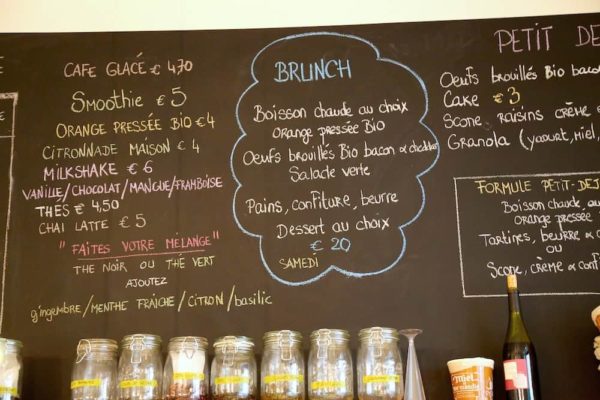 CAFE GLACÉ € 4,70
SMOOTHIE € 5
ORANGE PRESSÉE BIO € 4
CITRONNADE MAISON € 4
MILKSHAKE € 6
VANILLE/CHOCOLAT/MANGUE/FRAMBOISE
THÉS € 4,50
CHAI LATTE € 5
"FAITES VOTRE MÉLANGE"
THE NOIR OU THÉ VERT
AJOUTEZ
gingembre/MENTHE FRAÎCHE/CITRON/basilic
BRUNCH
Boisson chaude au choix
Orange pressée Bio
Oeufs brouillés Bio bacon & cheddar
Salade verte
Pains, confiture, beurre
Dessert au choix
€ 20
SAMEDI
PETIT DE
Oeufs brouillés Bio bacon
Cake € 3
Scone raisins crème &
Granola (yaourt, miel,
FORMULE PETIT-DEJ
Boisson chaude, au
Orange pressée
Tartines, beurre &
OU
Scone, crème & conf
Miel